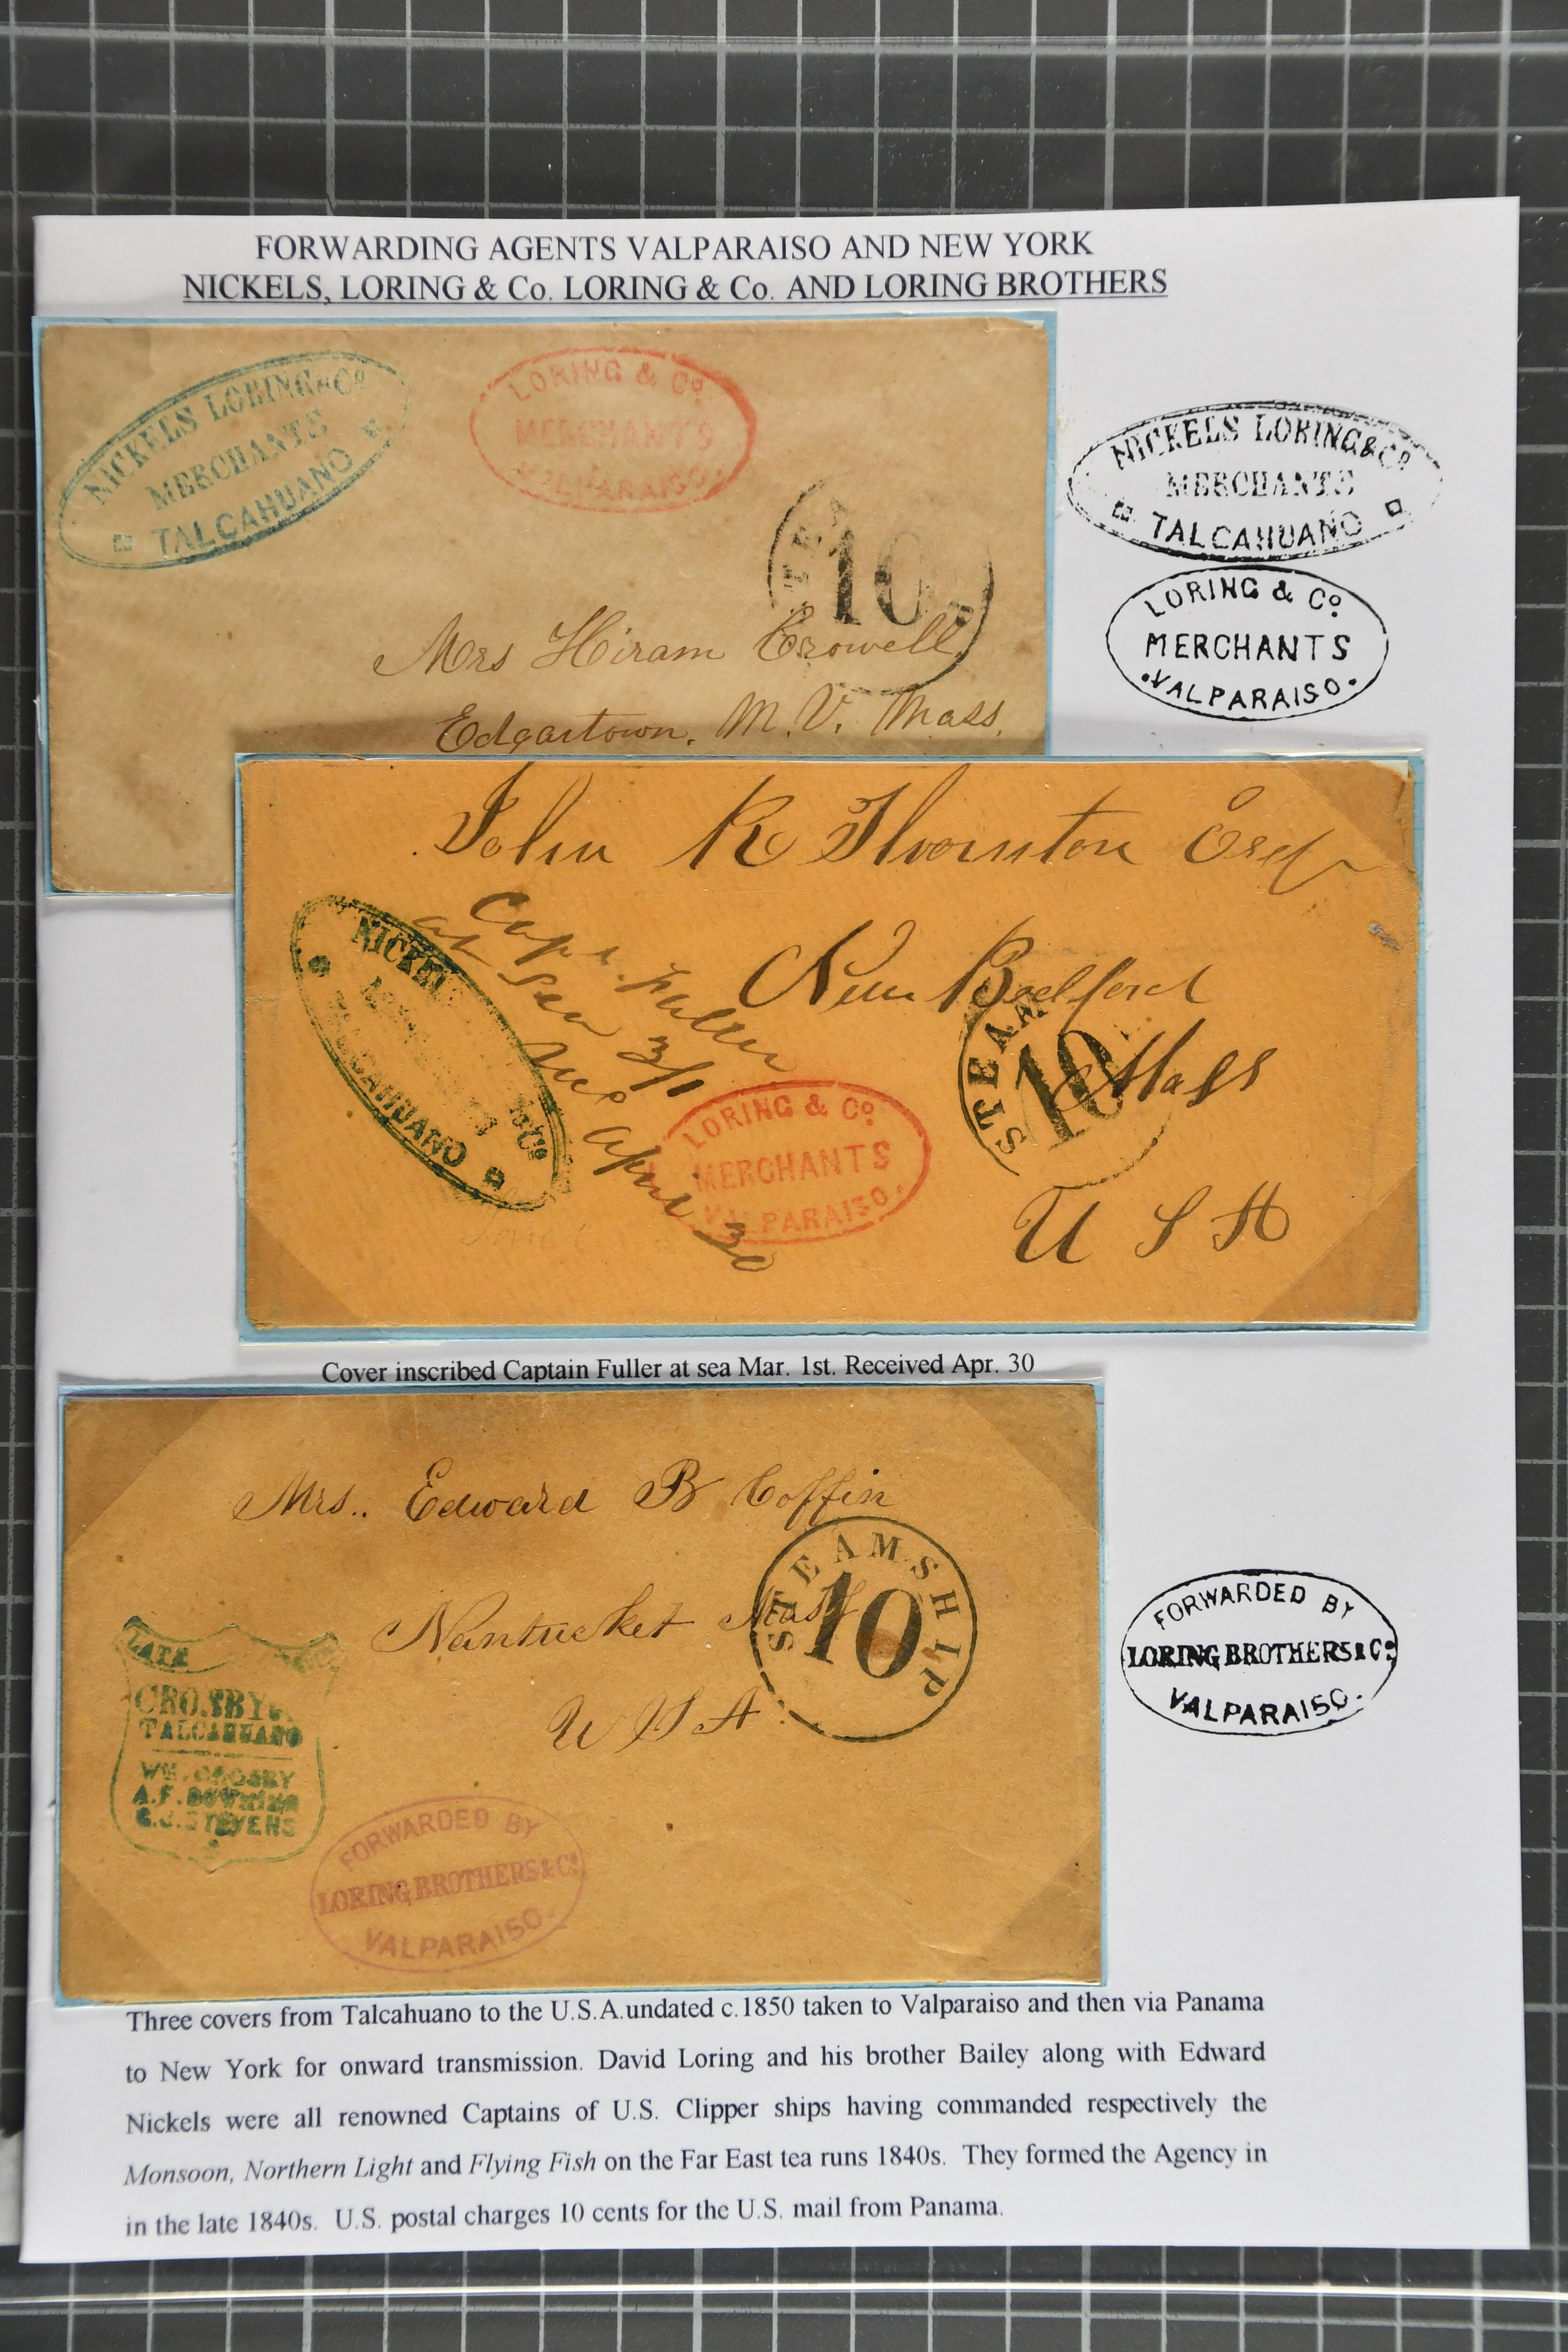 FORWARDING AGENTS VALPARAISO AND NEW YORK
NICKELS, LORING & Co. LORING & Co. AND LORING BROTHERS
NICKELS LORING & Co
MERCHANTS
TALCAHUANO
LORING & Co
MERCHANTS
VALPARAISO
10
Mrs Hiram Crowell
Edgartown. M.V. Mass.
NICKELS LORING & Co
MERCHANTS
TALCAHUANO
LORING & Co
MERCHANTS
VALPARAISO
John R Thornton Esq
New Bedford
Mass
U S A
Capt. Fuller
at Sea 3/1
April 30
NICKELS
& Co
TALCAHUANO
LORING & Co
MERCHANTS
VALPARAISO.
STEAM
10
Cover inscribed Captain Fuller at sea Mar. 1st. Received Apr. 30
Mrs.. Edward B Coffin
Nantucket Mass
U S A
STEAMSHIP
10
LATE
CROSBY
TALCAHUANO
WM. CROSBY
A.F. DOWNING
G.J. STEVENS
FORWARDED BY
LORING BROTHERS & Co
VALPARAISO.
FORWARDED BY
LORING BROTHERS & Co
VALPARAISO.
Three covers from Talcahuano to the U.S.A.undated c.1850 taken to Valparaiso and then via Panama
to New York for onward transmission. David Loring and his brother Bailey along with Edward
Nickels were all renowned Captains of U.S. Clipper ships having commanded respectively the
Monsoon, Northern Light and Flying Fish on the Far East tea runs 1840s. They formed the Agency in
in the late 1840s. U.S. postal charges 10 cents for the U.S. mail from Panama.